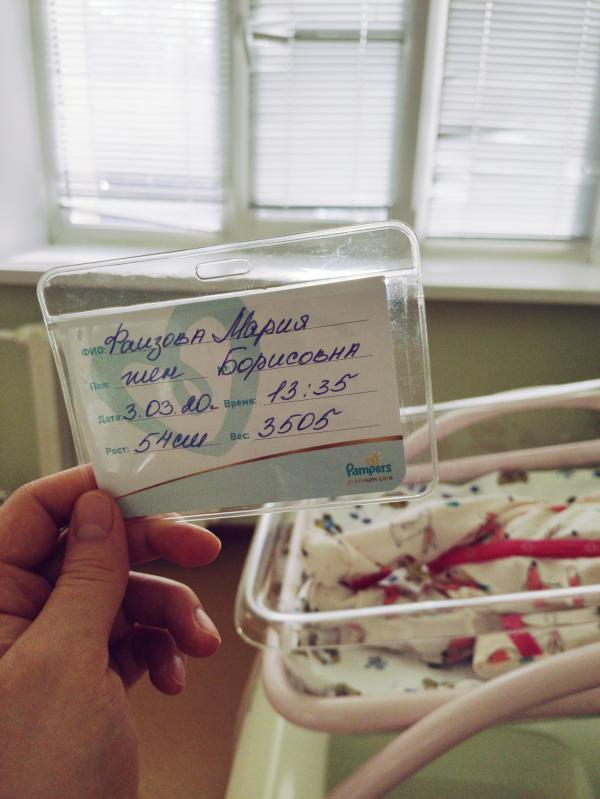 ФИО: Фаизова Мария
Пол: жен Борисовна
Дата: 3.03.20г. Время: 13:35
Рост: 54см Вес: 3505
Pampers
premium care